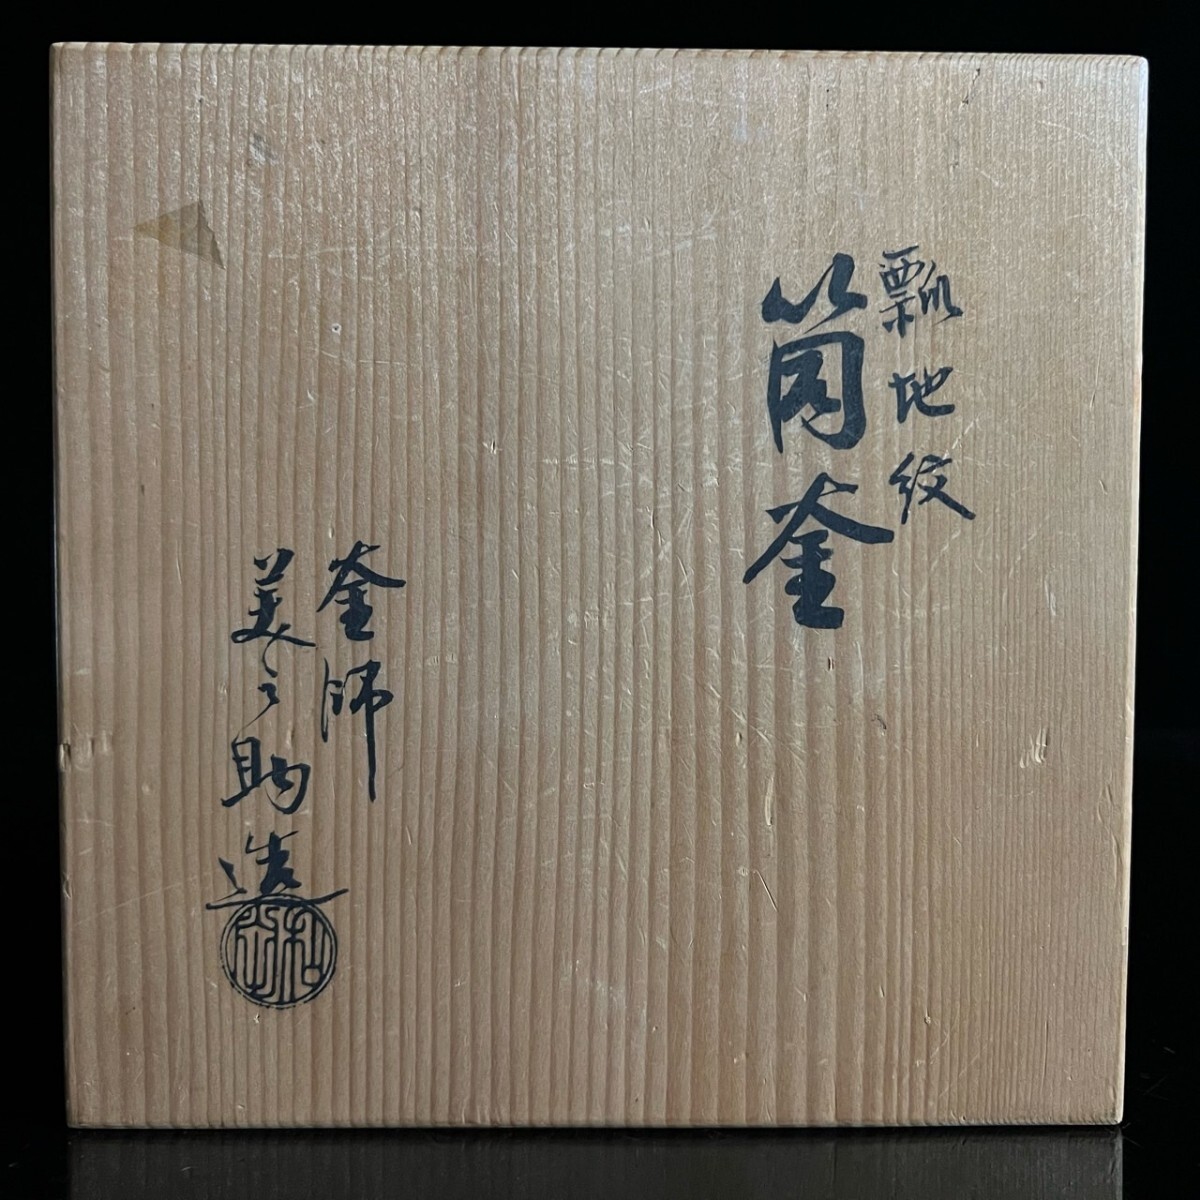 瓢地紋
筒釜
釜師
美之助造